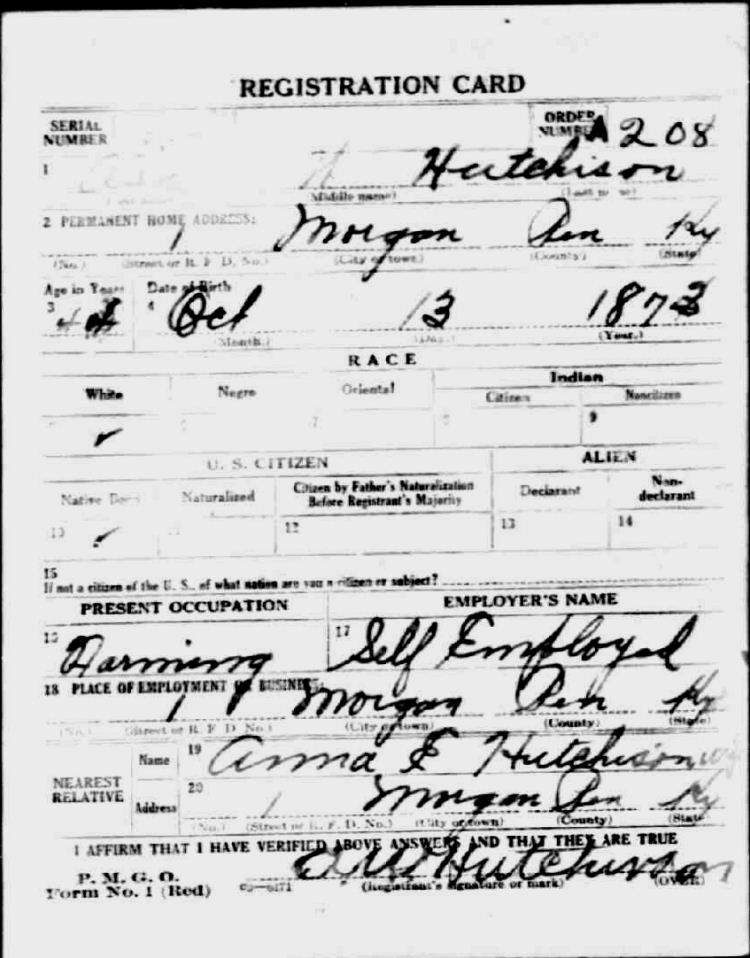 REGISTRATION CARD
SERIAL NUMBER
ORDER NUMBER A 208
1 Hutchison
(Middle name) (Last name)
2 PERMANENT HOME ADDRESS:
1 Morgan Pen Ky
(No.) (Street or R. F. D. No.) (City or town) (County) (State)
Age in Years Date of Birth
3 4 Oct 13 1873
(Month.) (Day.) (Year.)
RACE
White Negro Oriental Indian
Citizen Noncitizen
✓ 9
U. S. CITIZEN ALIEN
Native Born Naturalized Citizen by Father's Naturalization Before Registrant's Majority Declarant Non-declarant
10 ✓ 12 13 14
15
If not a citizen of the U. S., of what nation are you a citizen or subject?
PRESENT OCCUPATION EMPLOYER'S NAME
16 Farming 17 Self Employed
18 PLACE OF EMPLOYMENT OR BUSINESS:
1 Morgan Pen Ky
(No.) (Street or R. F. D. No.) (City or town) (County) (State)
NEAREST RELATIVE
Name 19 Anna E Hutchison
Address 20 1 Morgan Pen Ky
(No.) (Street or R. F. D. No.) (City or town) (County) (State)
I AFFIRM THAT I HAVE VERIFIED ABOVE ANSWERS AND THAT THEY ARE TRUE
P. M. G. O.
Form No. 1 (Red) Hutchison
(Registrant's signature or mark) (OVER)